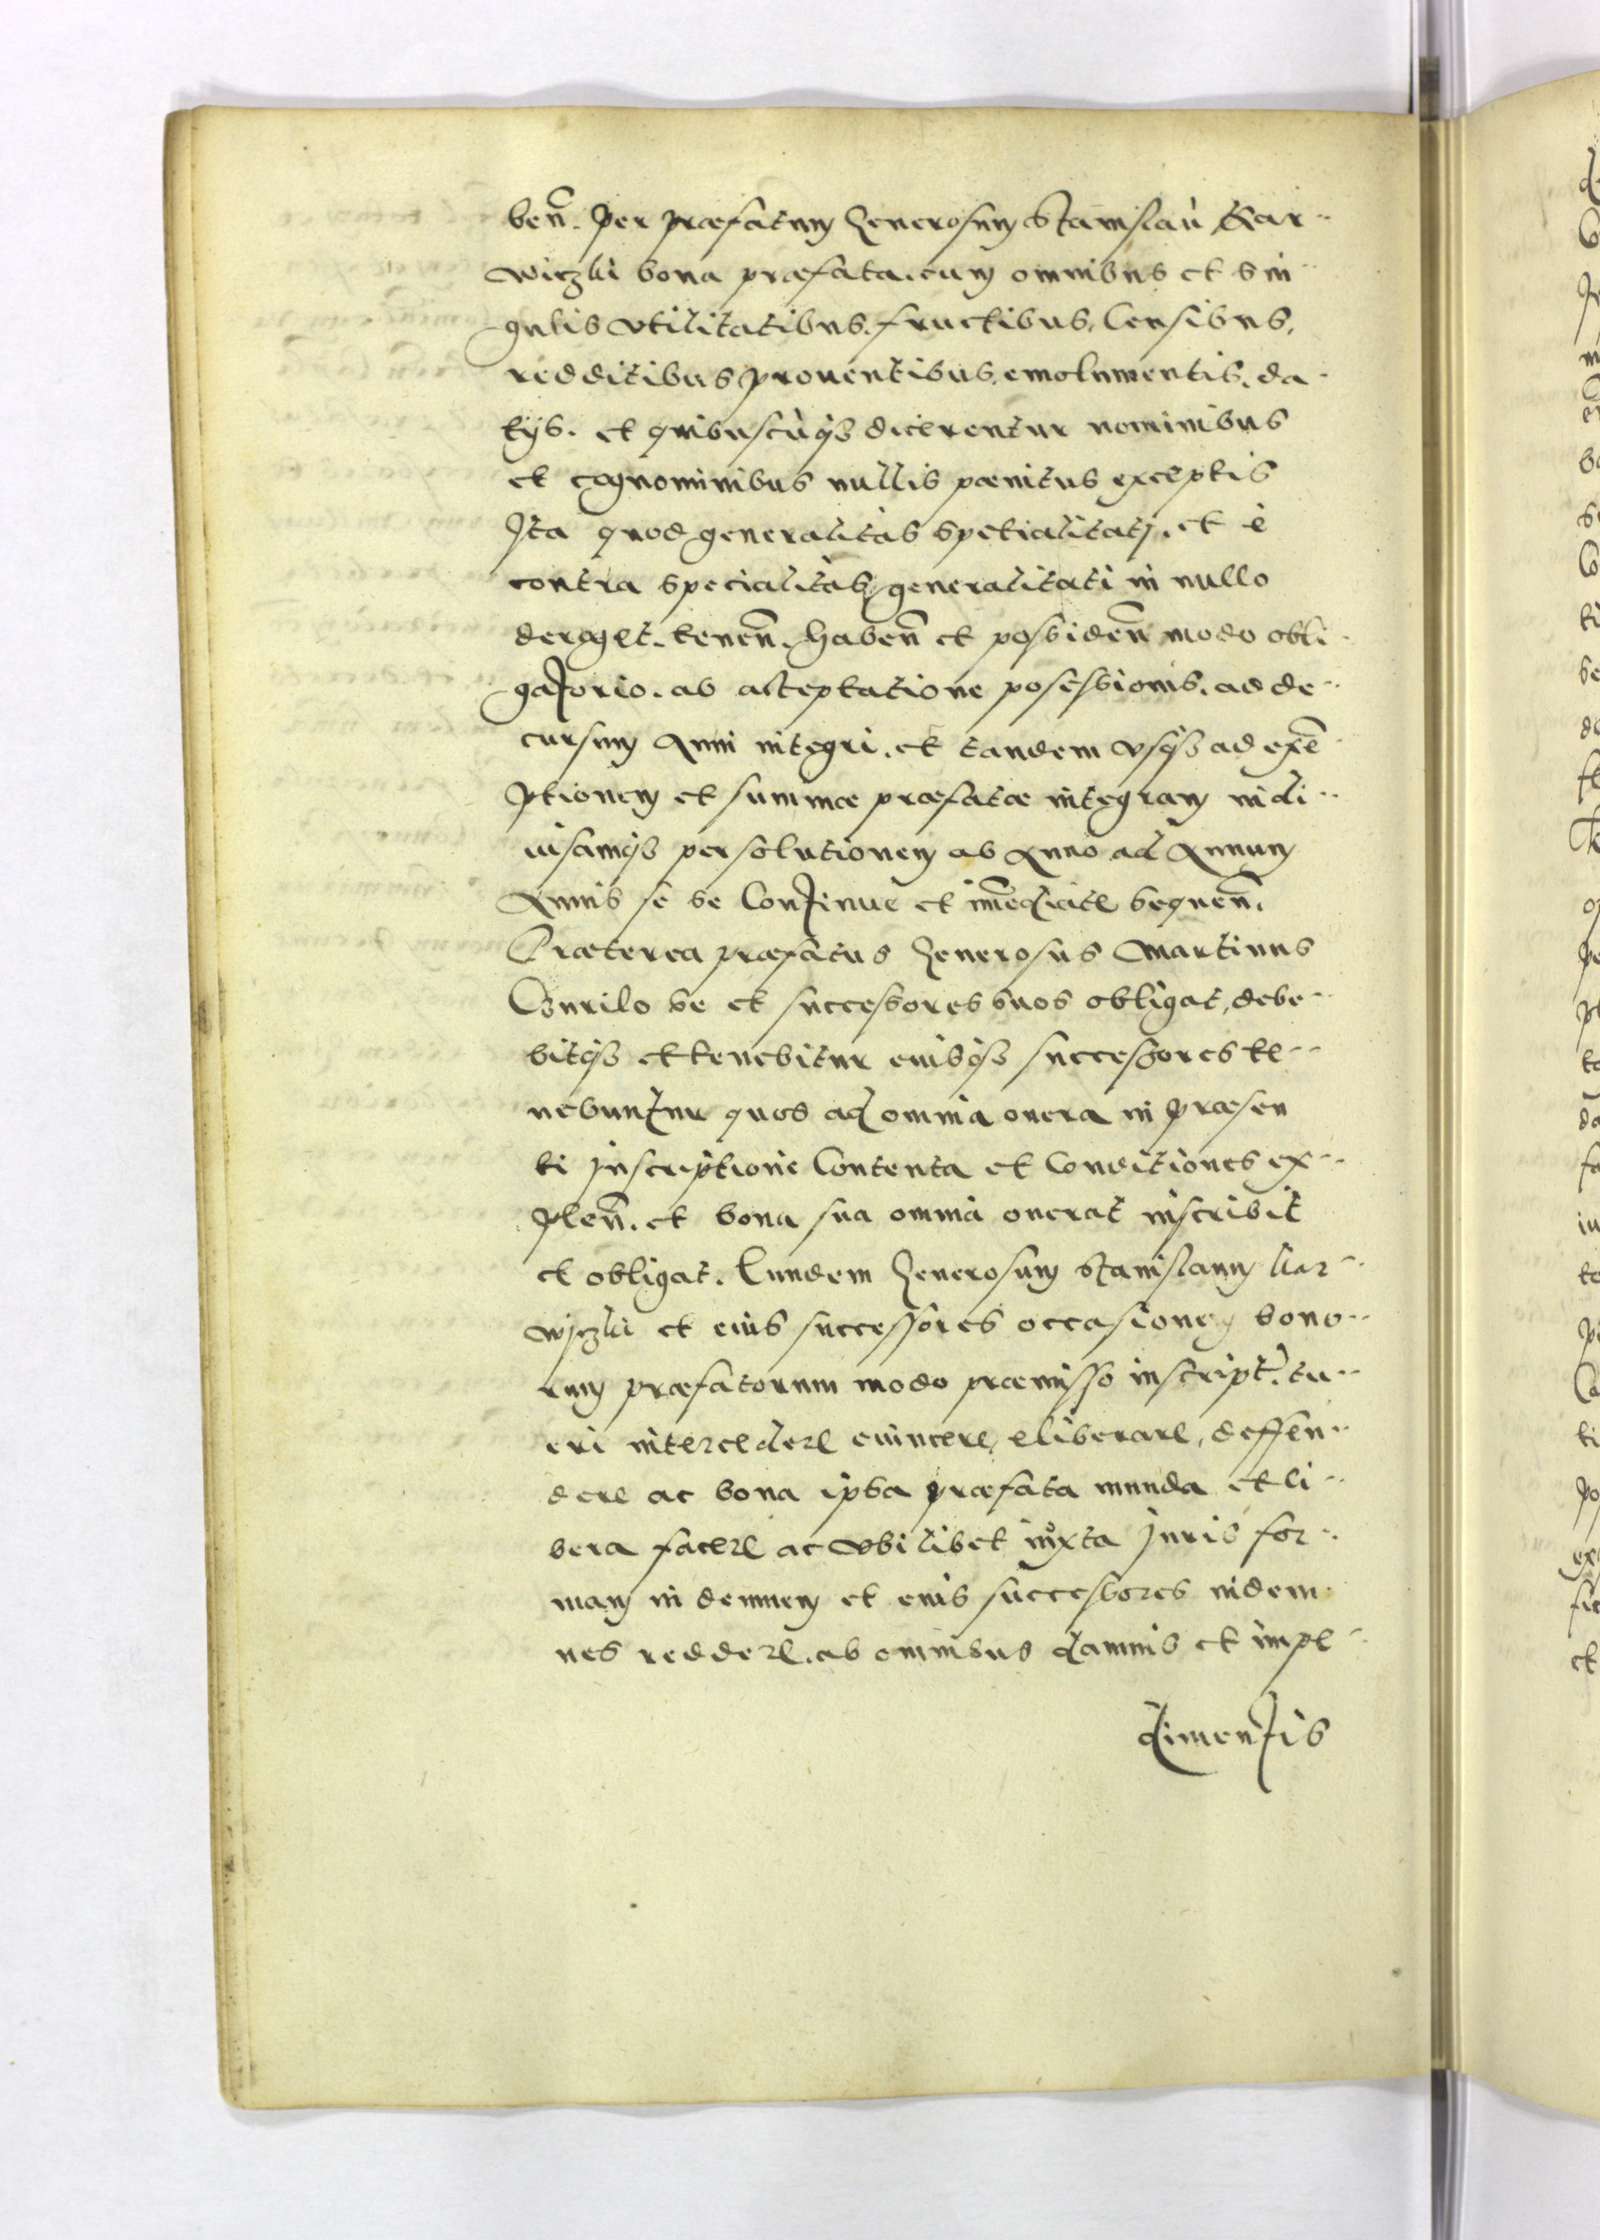 beñ. per præfatum Generosum Stanislaũ Kar-
wiczki bona præfata. cum omnibus et sin
gulis vtilitatibus. fructibus, Censibus,
redditibus prouentibus, emolumentis. da-
tijs. et quibuscũqз dicerentur nominibus
et cognominibus nullis pœnitus exceptis
Ita quod generalitas spetialitatj. et è
contra specialitas, generalitati in nullo
deroget. teneñ. habeñ et possideñ modo obli-
gatorio. ab acceptatione posessionis. ad de-
cursum Anni integri. et tandem vsqз ad exẽ-
ptionem et summæ præfatæ integram indi-
uisamqз persolutionem ab Anno ad Annum
Annis se se Continuè et im̃ediate sequeñ.
Præterea præfatus Generosus Martinus
Curilo se et successores suos obligat, debe-
bitqз et tenebitur eiusqз successores te-
nebuntur quos ad omnia onera in præsen
ti Inscriptione Contenta et Conditiones ex-
pleñ. et bona sua omnia onerat inscribit
et obligat. Eundem Generosum Stanislaum Kar-
wjczki et eius successores occasionem bono-
rum præfatorum modo præmisso inscript. tu-
eri intercedere euincere, eliberare, deffen-
dere ac bona ipsa præfata munda et li-
bera facere ac vbilibet iuxta Juris for-
mam indemnem et eius successores indem-
nes reddere. ab omnibus damnis et impe-
dimentis